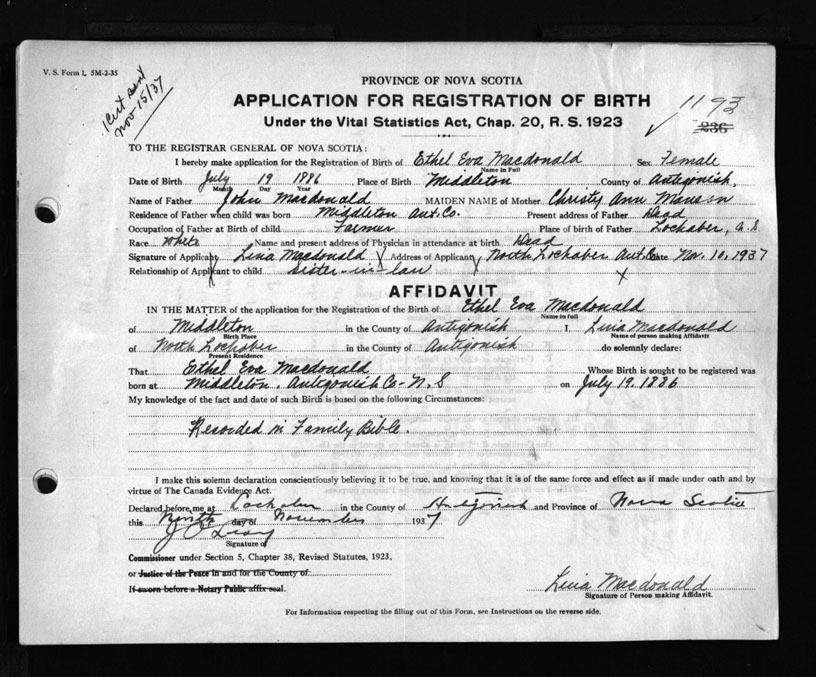 V. S. Form L 5M-2-35
Cert sent
Nov-15/37
PROVINCE OF NOVA SCOTIA
APPLICATION FOR REGISTRATION OF BIRTH
1193
Under the Vital Statistics Act, Chap. 20, R. S. 1923
236
TO THE REGISTRAR GENERAL OF NOVA SCOTIA:
I hereby make application for the Registration of Birth of Ethel Eva Macdonald Sex Female
Name in Full
Date of Birth July 19 1886, Place of Birth Middleton County of Antigonish,
Month Day Year
Name of Father John Macdonald MAIDEN NAME of Mother Christy Ann Manson
Residence of Father when child was born Middleton Ant. Co. Present address of Father Dead
Occupation of Father at Birth of child Farmer Place of birth of Father Lochaber,
Race White Name and present address of Physician in attendance at birth Dead
Signature of Applicant Lina Macdonald Address of Applicant North Lochaber Ant. Co Date Nov. 10, 1937
Relationship of Applicant to child sister-in-law
AFFIDAVIT
IN THE MATTER of the application for the Registration of the Birth of Ethel Eva Macdonald
Name in full
of Middleton in the County of Antigonish I, Lina Macdonald
Birth Place Name of person making Affidavit
of North Lochaber in the County of Antigonish do solemnly declare:
Present Residence
That Ethel Eva Macdonald Whose Birth is sought to be registered was
born at Middleton, Antigonish Co- N. S on July 19, 1886
My knowledge of the fact and date of such Birth is based on the following Circumstances:
Recorded in Family Bible.
I make this solemn declaration conscientiously believing it to be true, and knowing that it is of the same force and effect as if made under oath and by
virtue of The Canada Evidence Act.
Declared before me at Lochaber in the County of Antigonish and Province of Nova Scotia
this Ninth day of November 1937
Signature of
Commissioner under Section 5, Chapter 38, Revised Statutes, 1923.
or Justice of the Peace in and for the County of
If sworn before a Notary Public affix seal.
Lina Macdonald
Signature of Person making Affidavit.
For Information respecting the filling out of this Form, see Instructions on the reverse side.